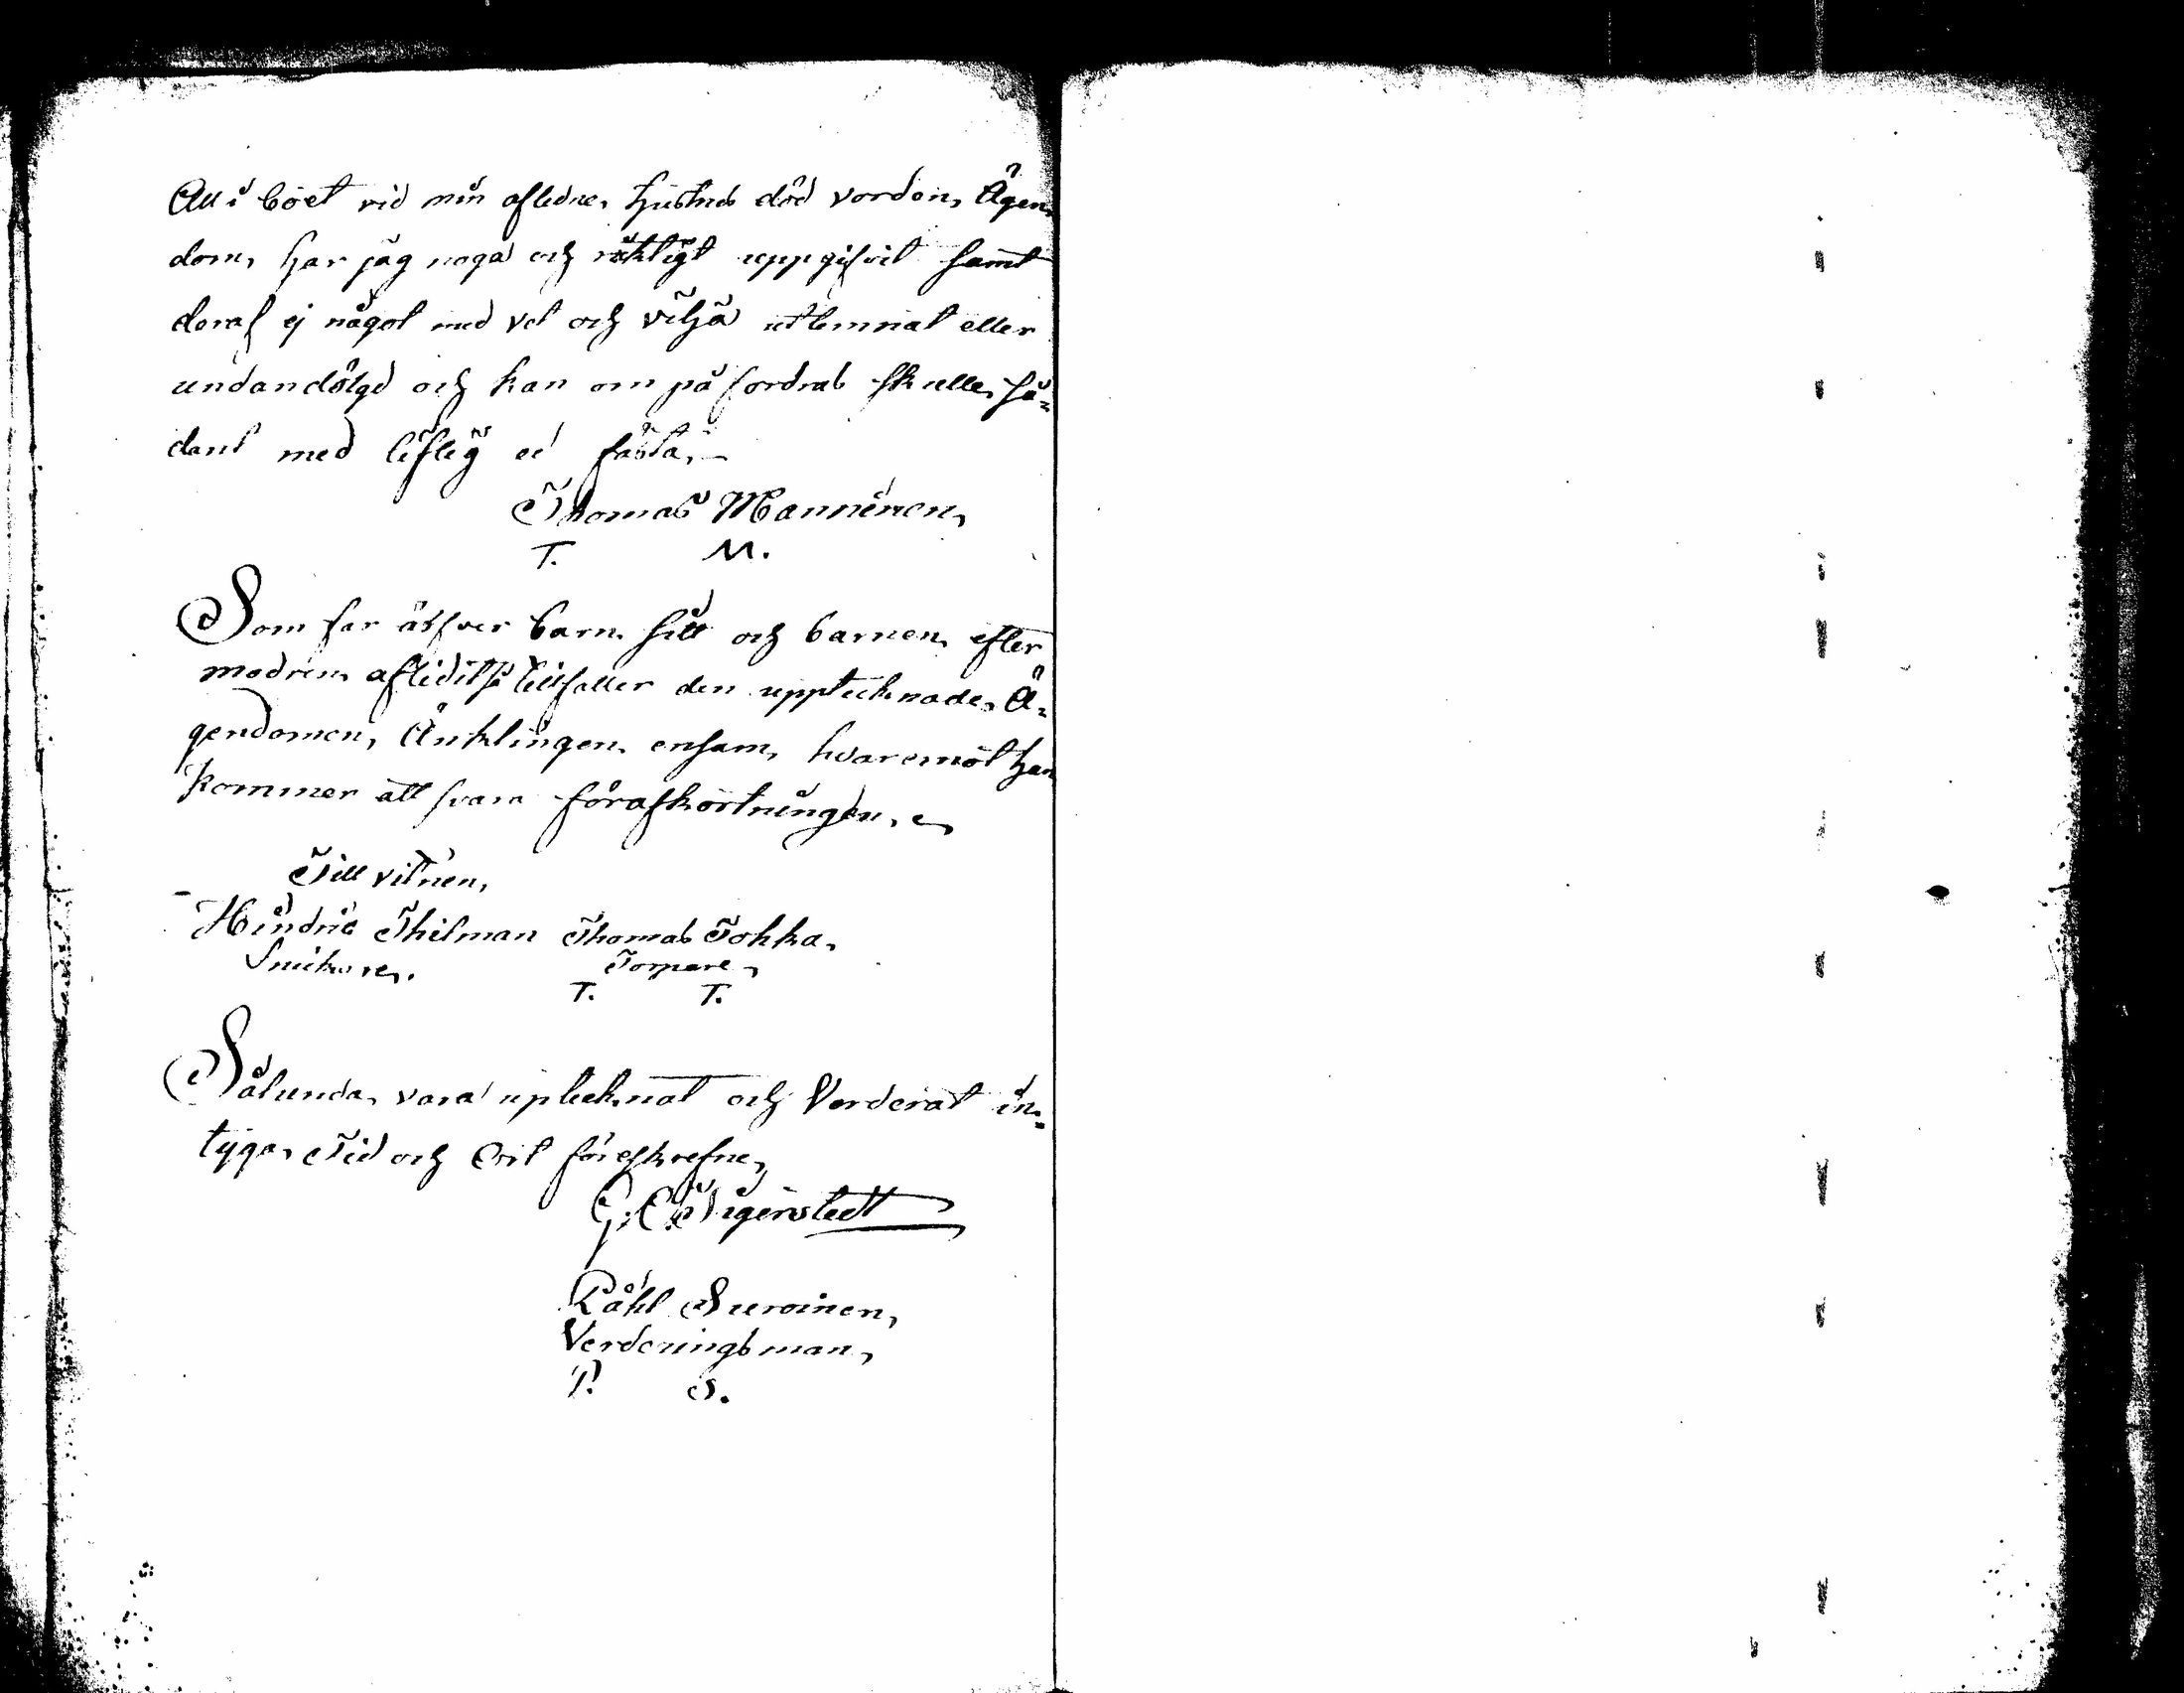 All i boet vid min aflidne hustrus död vordne Ägen
dom, har jag noga och riktigt uppgifvit samt
deraf ej något med vet och vilja utlemnat eller
undandölgd och kan om på fordras skulle så=
dant med liflig ed fästa,
Thomas Manninen,
T. M.
Som far ärfver barn sitt och barnen efter
modren aflidit så tillfaller den upptecknade Ä=
gendomen, Änklingen ensam, hvaremot han
kommer att svara för afkortningen.
Till vitnen,
Hindric Thilman Thomas Tokka,
Snickare. Torpare,
T. T.
Sålunda vara uptecknat och Verderat in=
tyga, Tid och Ort föreskrefne,
G: C: Tigerstedt
Påhl Suroinen,
Verderingsman,
P. S.